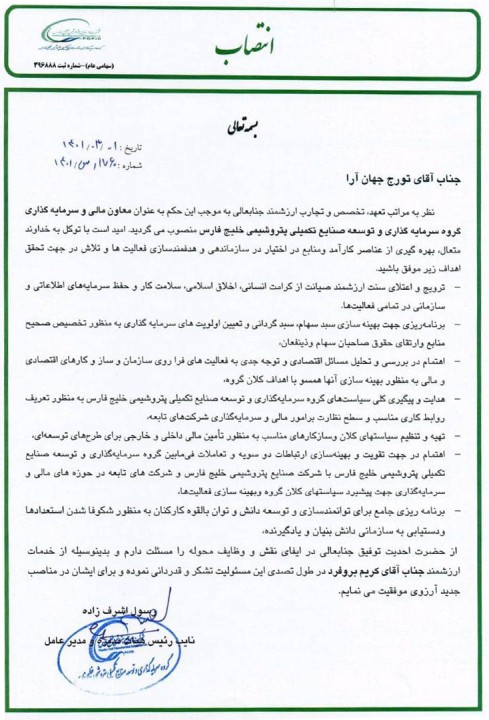 انتصاب
(سهامی عام)-شماره ثبت ۳۹۶۸۸۸
بسمه تعالی
تاریخ : ۱۴۰۱/۰۳/۰۱
شماره :
جناب آقای تورج جهان آرا
نظر به مراتب تعهد، تخصص و تجارب ارزشمند جنابعالی به موجب این حکم به عنوان معاون مالی و سرمایه گذاری
گروه سرمایه گذاری و توسعه صنایع تکمیلی پتروشیمی خلیج فارس منصوب می گردید. امید است با توکل به خداوند
متعال، بهره گیری از عناصر کارآمد ومنابع در اختیار در سازماندهی و هدفمندسازی فعالیت ها و تلاش در جهت تحقق
اهداف زیر موفق باشید.
– ترویج و اعتلای سنت ارزشمند صیانت از کرامت انسانی، اخلاق اسلامی، سلامت کار و حفظ سرمایه‌های اطلاعاتی و
سازمانی در تمامی فعالیت‌ها.
– برنامه‌ریزی جهت بهینه سازی سبد سهام، سبد گردانی و تعیین اولویت های سرمایه گذاری به منظور تخصیص صحیح
منابع وارتقای حقوق صاحبان سهام وذینفعان.
– اهتمام در بررسی و تحلیل مسائل اقتصادی و توجه جدی به فعالیت های فرا روی سازمان و ساز و کارهای اقتصادی
و مالی به منظور بهینه سازی آنها همسو با اهداف کلان گروه.
– هدایت و پیگیری کلی سیاست‌های گروه سرمایه‌گذاری و توسعه صنایع تکمیلی پتروشیمی خلیج فارس به منظور تعریف
روابط کاری مناسب و سطح نظارت برامور مالی و سرمایه‌گذاری شرکت‌های تابعه.
– تهیه و تنظیم سیاستهای کلان وسازکارهای مناسب به منظور تأمین مالی داخلی و خارجی برای طرح‌های توسعه‌ای.
– اهتمام در جهت تقویت و بهینه‌سازی ارتباطات دو سویه و تعاملات فی‌مابین گروه سرمایه‌گذاری و توسعه صنایع
تکمیلی پتروشیمی خلیج فارس با شرکت صنایع پتروشیمی خلیج فارس و شرکت های تابعه در حوزه های مالی و
سرمایه‌گذاری جهت پیشبرد سیاستهای کلان گروه وبهینه سازی فعالیت‌ها.
– برنامه ریزی جامع برای توانمندسازی و توسعه دانش و توان بالقوه کارکنان به منظور شکوفا شدن استعدادها
ودستیابی به سازمانی دانش بنیان و یادگیرنده.
از حضرت احدیت توفیق جنابعالی در ایفای نقش و وظایف محوله را مسئلت دارم و بدینوسیله از خدمات
ارزشمند جناب آقای کریم بروفرد در طول تصدی این مسئولیت تشکر و قدردانی نموده و برای ایشان در مناصب
جدید آرزوی موفقیت می نمایم.
رسول اشرف زاده
نایب رئیس هیأت مدیره و مدیر عامل